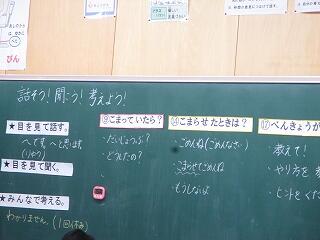 話そう！聞こう！考えよう！
★目を見て話す。
へです。へと思います
(りゆう)
★目を見て聞く。
★みんなで考える。
わかりません。(1回休み)
⑨こまっていたら？
・だいじょうぶ？
・どうしたの？
⑭こまらせたときは？
・ごめんね(ごめんなさい)
・こまらせてごめんね
・もうしないよ
⑰べんきょうが
・教えて！
・やり方を教
・ヒントをくだ
びん